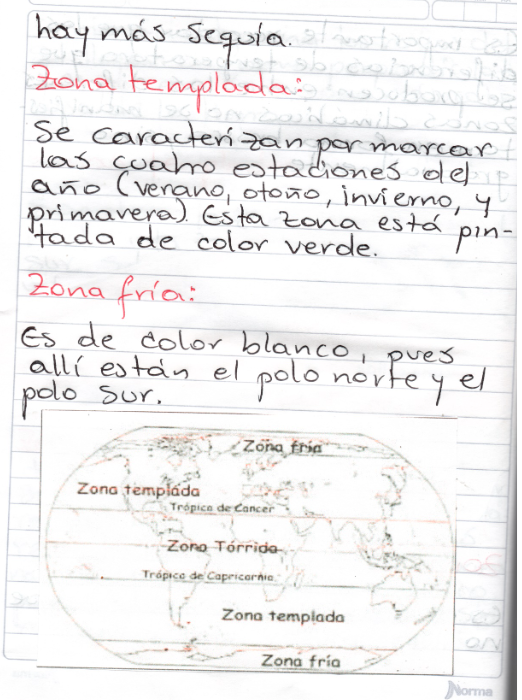 hay más sequía.
Zona templada:
Se caracterizan por marcar
las cuatro estaciones del
año (verano, otoño, invierno, y
primavera) Esta zona está pin-
tada de color verde.
Zona fría:
Es de color blanco, pues
allí están el polo norte y el
polo sur.
Zona fría
Zona templada
Trópico de Cancer
Zona Tórrida
Trópico de Capricornio
Zona templada
Zona fría
Norma